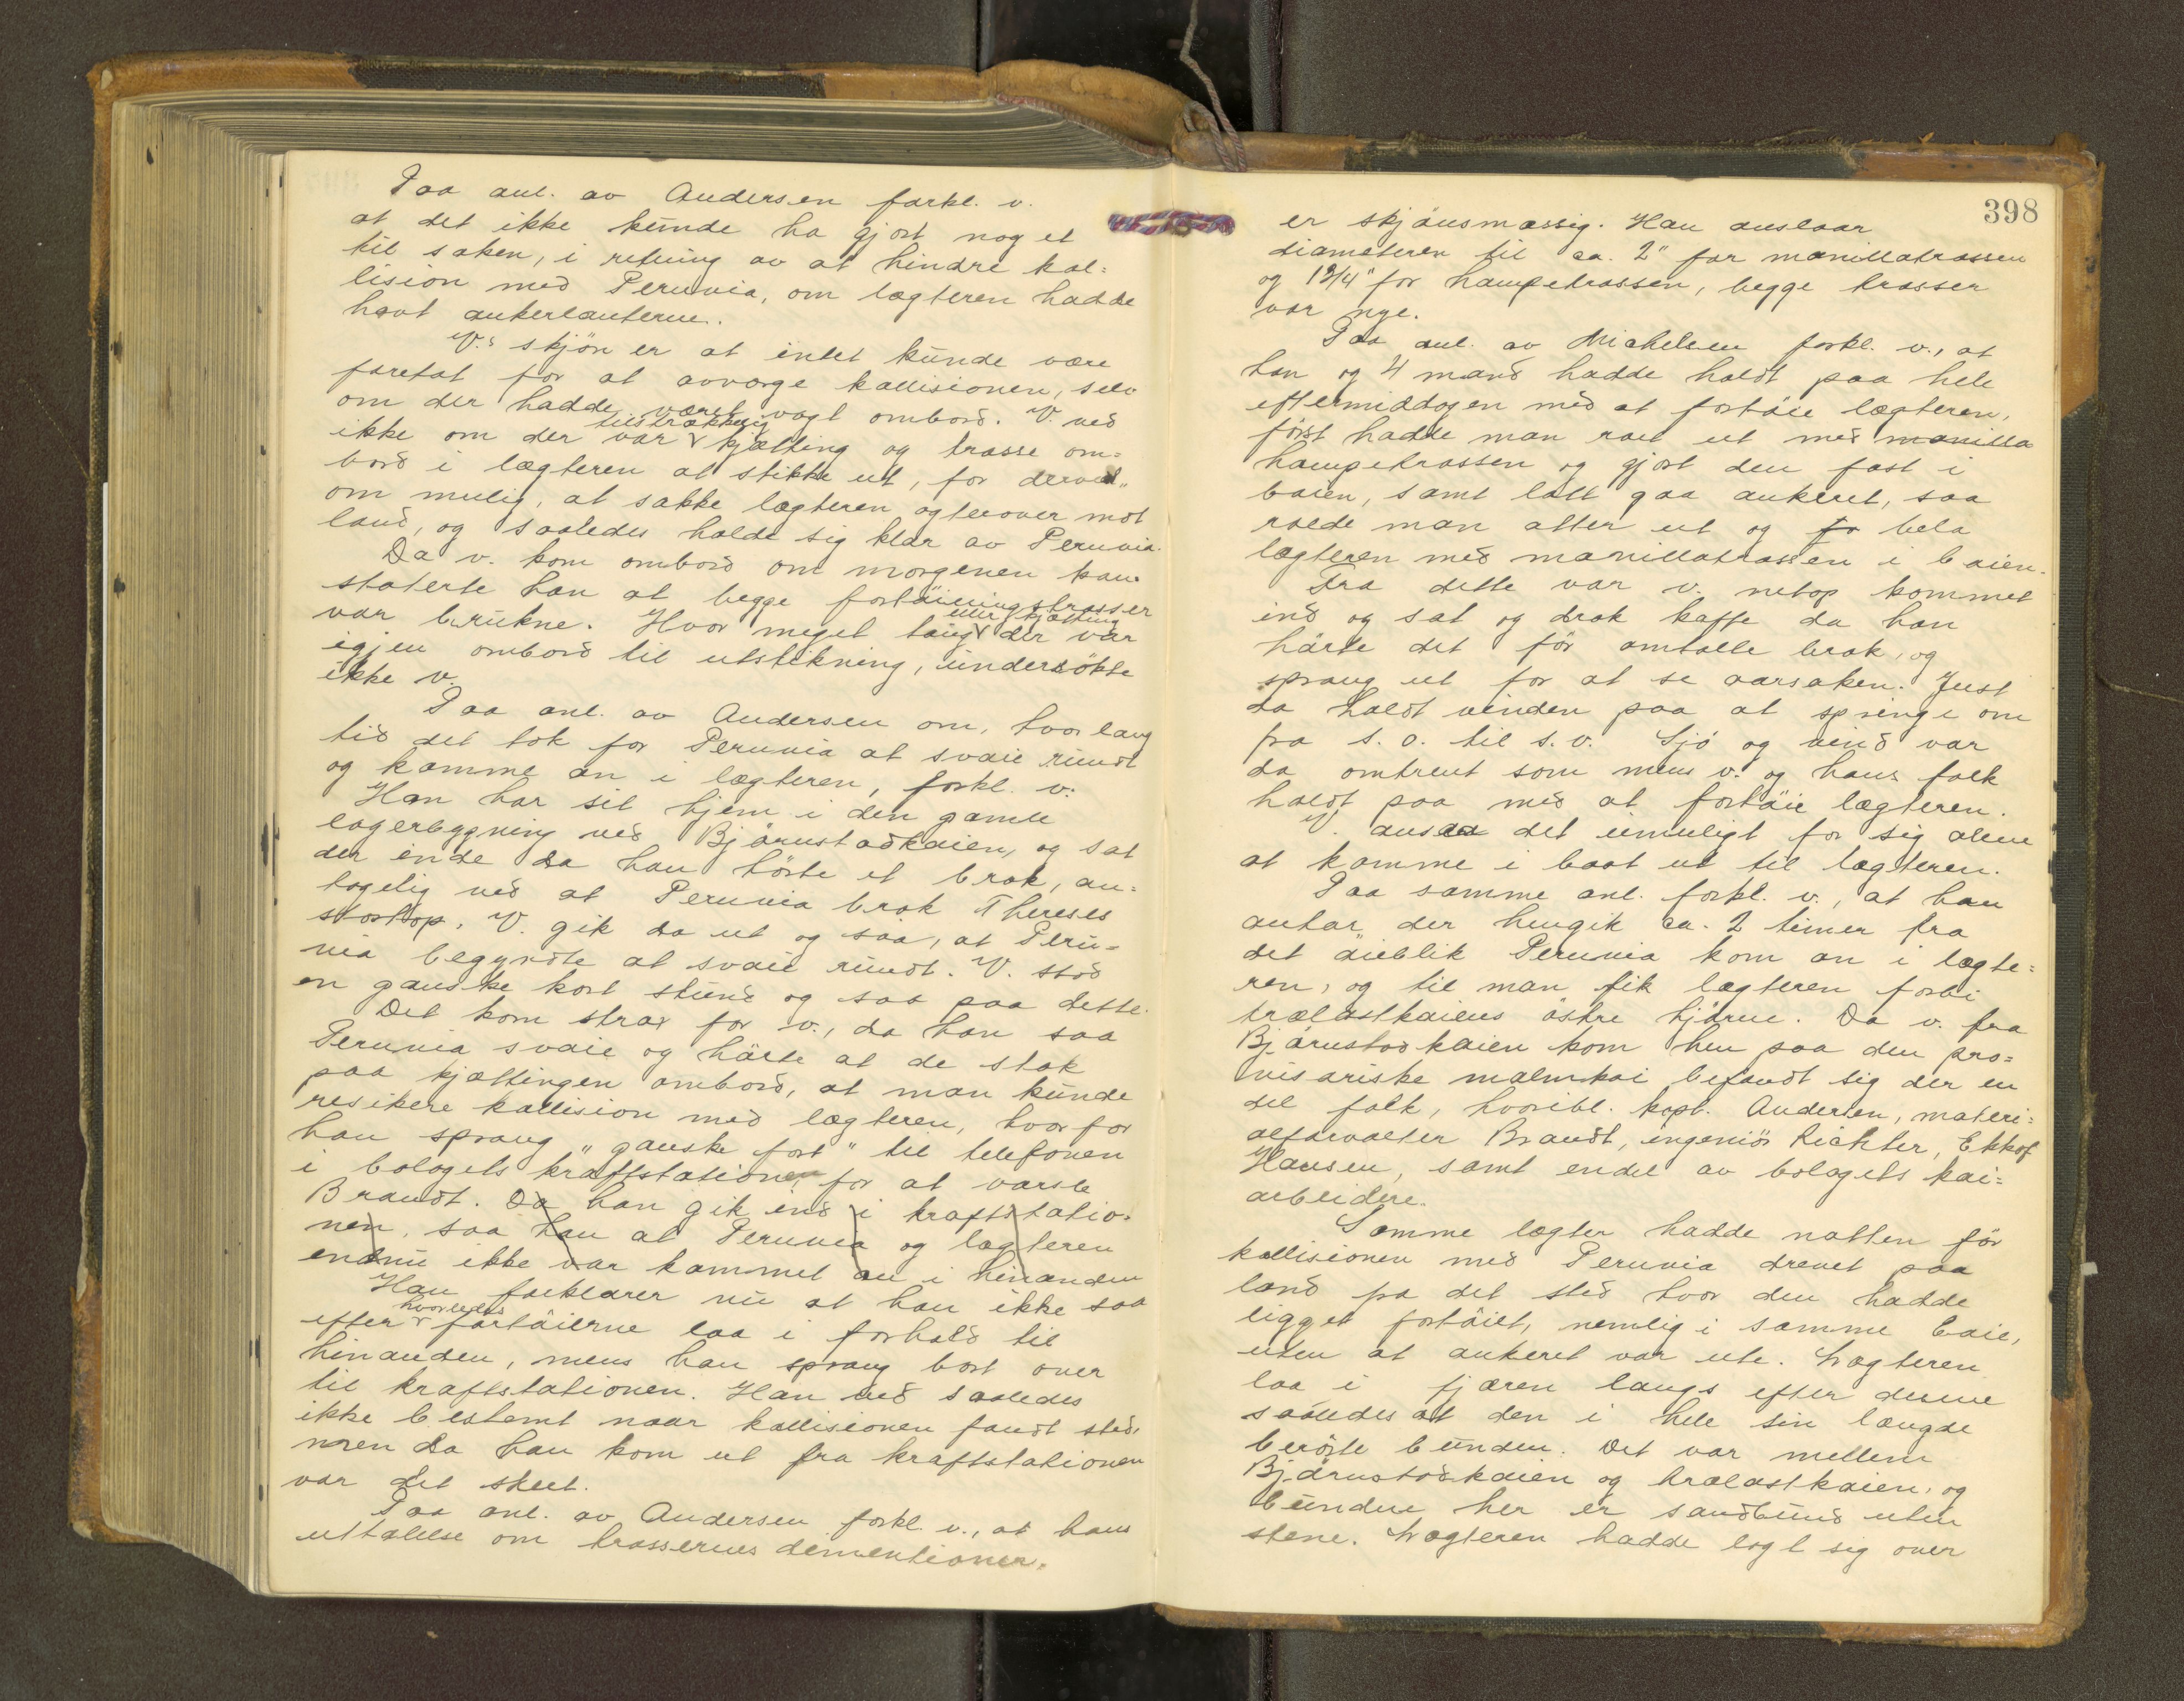 Paa anl. av Andersen forkl. v.
at det ikke kunde ha gjort noget
til saken, i retning av at hindre kol-
lision med Peruvia, om lægteren hadde
havt ankerlanterne.
V.s skjön er at intet kunde være
foretat for at avværge kollisionen, selv
om der hadde været vagt ombord. V. ved
ikke om der var tilstrækkelig kjætting og trosse om-
bord i lægteren at stikke ut, for derved
om mulig, at sakke lægteren agterover mot
land, og saaledes holde sig klar av Peruvia.
Da v. kom ombord om morgenen kon-
staterte han at begge fortöiningstrosser
var brukne. Hvor meget taug eller kjætting der var
igjen ombord til utstikning, undersökte
ikke v.
Paa anl. av Andersen om, hvor lang
tid det tok for Peruvia at svaie rundt
og komme an i lægteren, forkl. v:
Han har sit hjem i den gamle
lagerbygning ved Björnstadkaien, og sat
der inde da han hörte et brak, an-
tagelig ved at Peruvia brak Thereses
stortop. V. gik da ut og saa, at Peru-
via begyndte at svaie rundt. V. stod
en ganske kort stund og saa paa dette.
Det kom strax for v., da han saa
Peruvia svaie og hörte at de stak
paa kjættingen ombord, at man kunde
resikere kollision med lægteren, hvorfor
han sprang "ganske fort" til telefonen
i bolagets kraftstation for at varsle
Brandt. Da han gik ind i kraftstatio-
nen, saa han at Peruvia og lægteren
endnu ikke var kommet an i hinanden
Han forklarer nu at han ikke saa
efter hvorledes fartöierne laa i forhold til
hinanden, mens han sprang bort over
til kraftstationen. Han ved saaledes
ikke bestemt naar kollisionen fandt sted,
men da han kom ut fra kraftstationen
var det skeet.
Paa anl. av Andersen forkl. v., at hans
uttalelse om trossernes dementioner
398
er skjönsmæssig. Han anslaar
diameteren til ca. 2" for manillatrossen
og 1 3/4" for hampetrossen, begge trosser
var nye.
Paa anl. av Michelsen forkl. v., at
han og 4 mand hadde holdt paa hele
eftermiddagen med at fortöie lægteren,
först hadde man roet ut med manilla
hampetrossen og gjort den fast i
baien, samt latt gaa ankeret, saa
roede man atter ut og fo bela
lægteren med manillatrossen i baien.
Fra dette var v. netop kommet
ind og sat og drak kaffe da han
hörte det för omtalte brak, og
sprang ut for at se aarsaken. Just
da holdt vinden paa at springe om
fra s.o. til s.v. Sjö og vind var
da omtrent som mens v. og hans folk
holdt paa med at fortöie lægteren.
V. ansaa det umuligt for sig alene
at komme i baat ut til lægteren.
Paa samme anl. forkl. v., at han
antar der hengik ca. 2 timer fra
det öieblik Peruvia kom an i lægte-
ren, og til man fik lægteren forbi
trælastkaiens östre hjörne. Da v. fra
Björnstadkaien kom hen paa den pro-
visoriske malmkai befandt sig der en
del folk, hvoribl. kapt. Andersen, materi-
alforvalter Brandt, ingeniör Richter, Ekhof
Hansen, samt endel av bolagets kai-
arbeidere.
Samme lægter hadde natten för
kollisionen med Peruvia drevet paa
land fra det sted hvor den hadde
ligget fortöiet, nemlig i samme baie,
uten at ankeret var ute. Lægteren
laa i fjæren langs efter denne
saaledes at den i hele sin længde
berörte bunden. Det var mellem
Bjørnstadkaien og trælastkaien, og
bunden her er sandbund uten
stene. Lægteren hadde lagt sig over